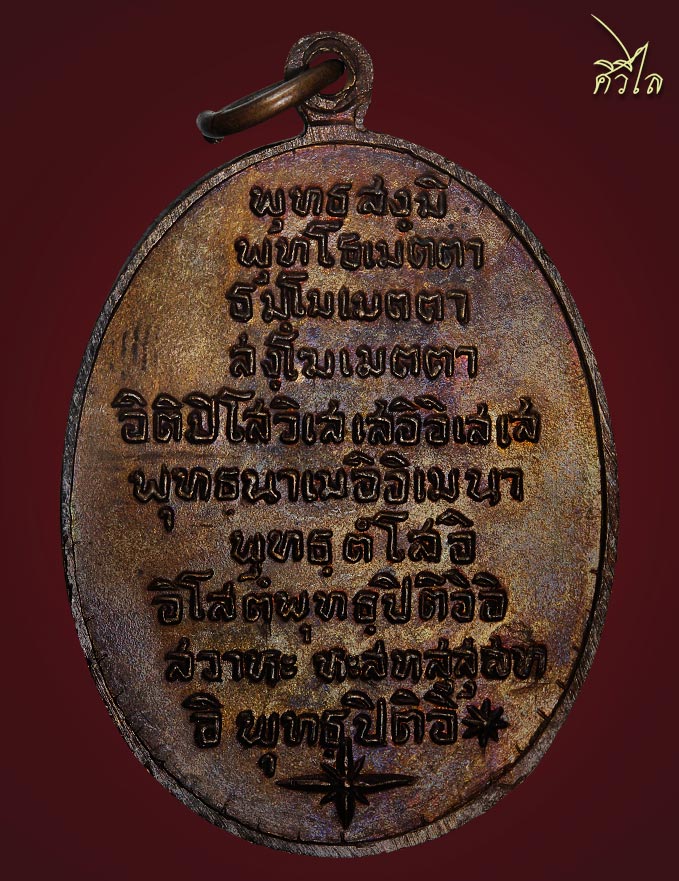 ศิวิไล
พุทธสงฺมิ
พุทโธเมตตา
ธมฺโมเมตตา
สงฺโฆเมตตา
อิติปิโสวิเสเสอิอิเสเส
พุทธฺนาเมอิอิเมนา
พุทธฺตํโสอิ
อิโสตํพุทธฺปิติอิอิ
สวาหะ หะสหสฺสุสห
อิ พุทธฺปิติอิ